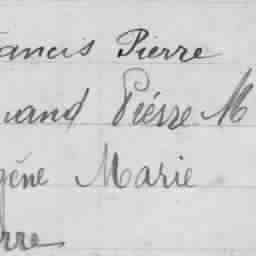 rancis Pierre
uand Piérre M
gène Marie
erre